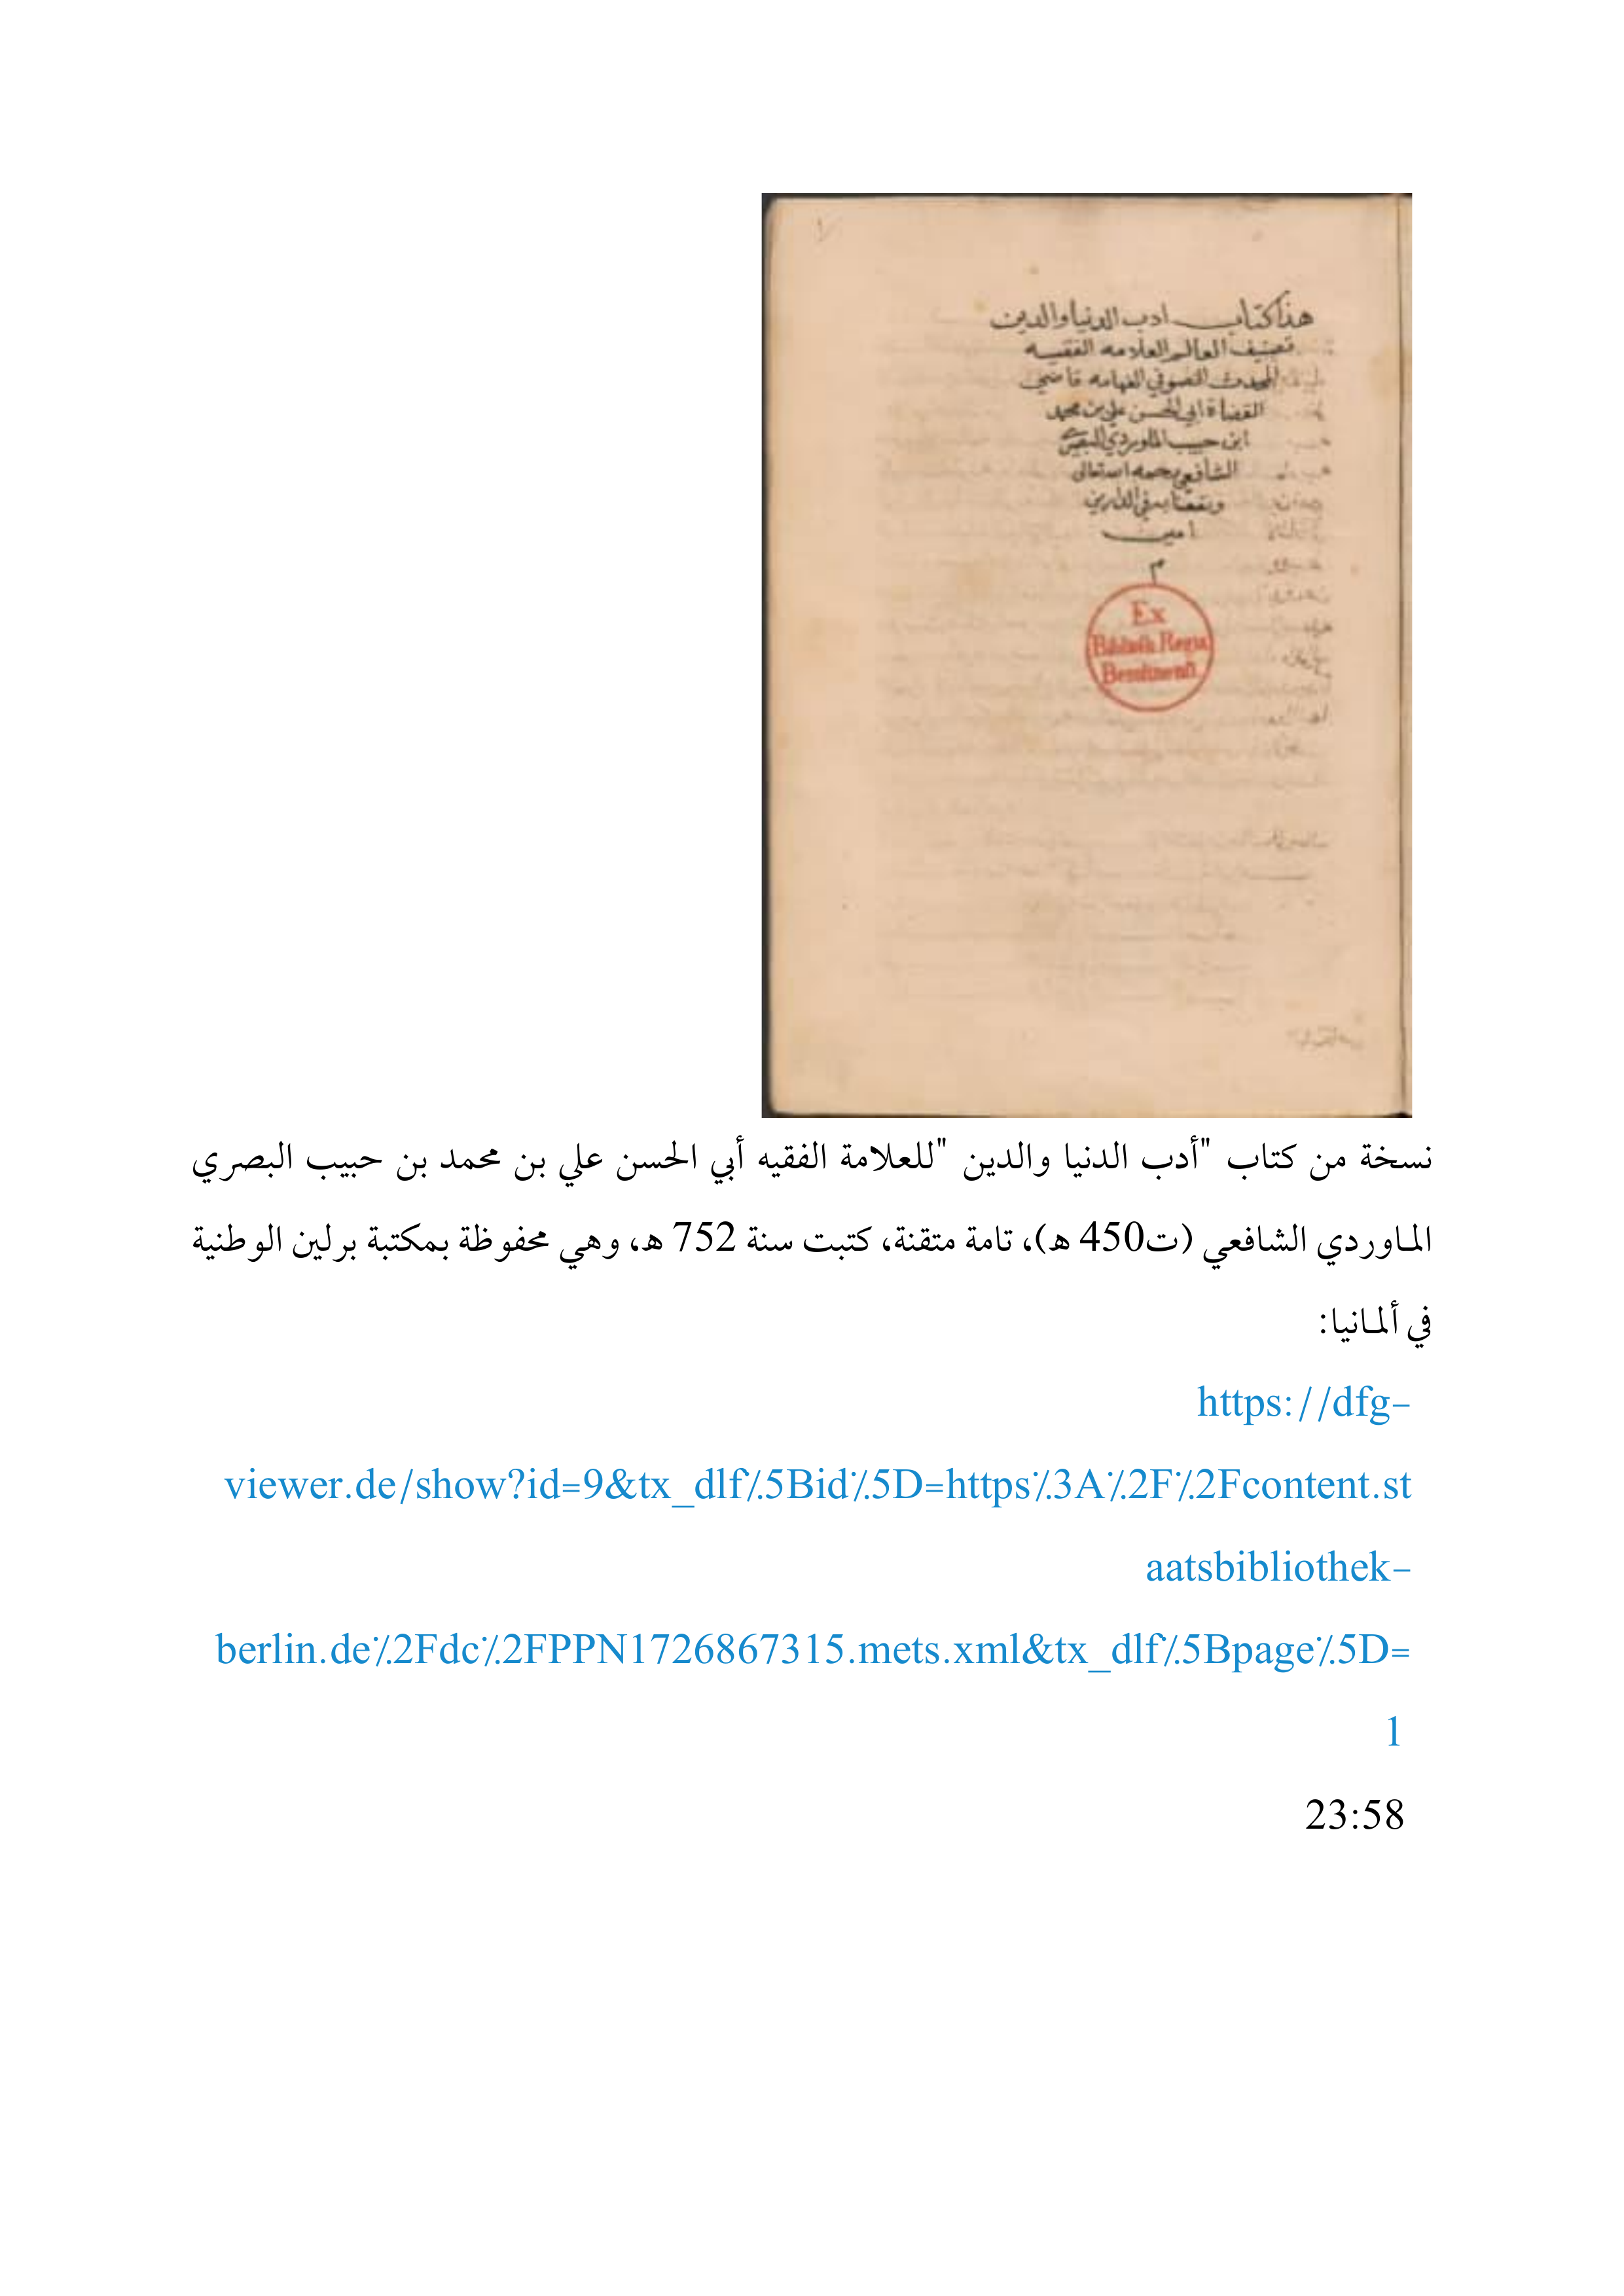 هذا كتاب ادب الدنيا والدين
تصنيف العالم العلامه الفقيه
المحدث الصوفي الفهامه قاضي
القضاة ابي الحسن علي بن محمد
ابن حبيب الماوردي البصري
الشافعي رحمه الله تعالى
ونفعنا به في الدارين
امين
م
Ex
Biblioth. Regia
Berolinensi.
نسخة من كتاب "أدب الدنيا والدين "للعلامة الفقيه أبي الحسن علي بن محمد بن حبيب البصري
الماوردي الشافعي (ت450 هـ)، تامة متقنة، كتبت سنة 752 هـ، وهي محفوظة بمكتبة برلين الوطنية
في ألمانيا:
https://dfg-
viewer.de/show?id=9&tx_dlf%5Bid%5D=https%3A%2F%2Fcontent.st
aatsbibliothek-
berlin.de%2Fdc%2FPPN1726867315.mets.xml&tx_dlf%5Bpage%5D=
1
23:58